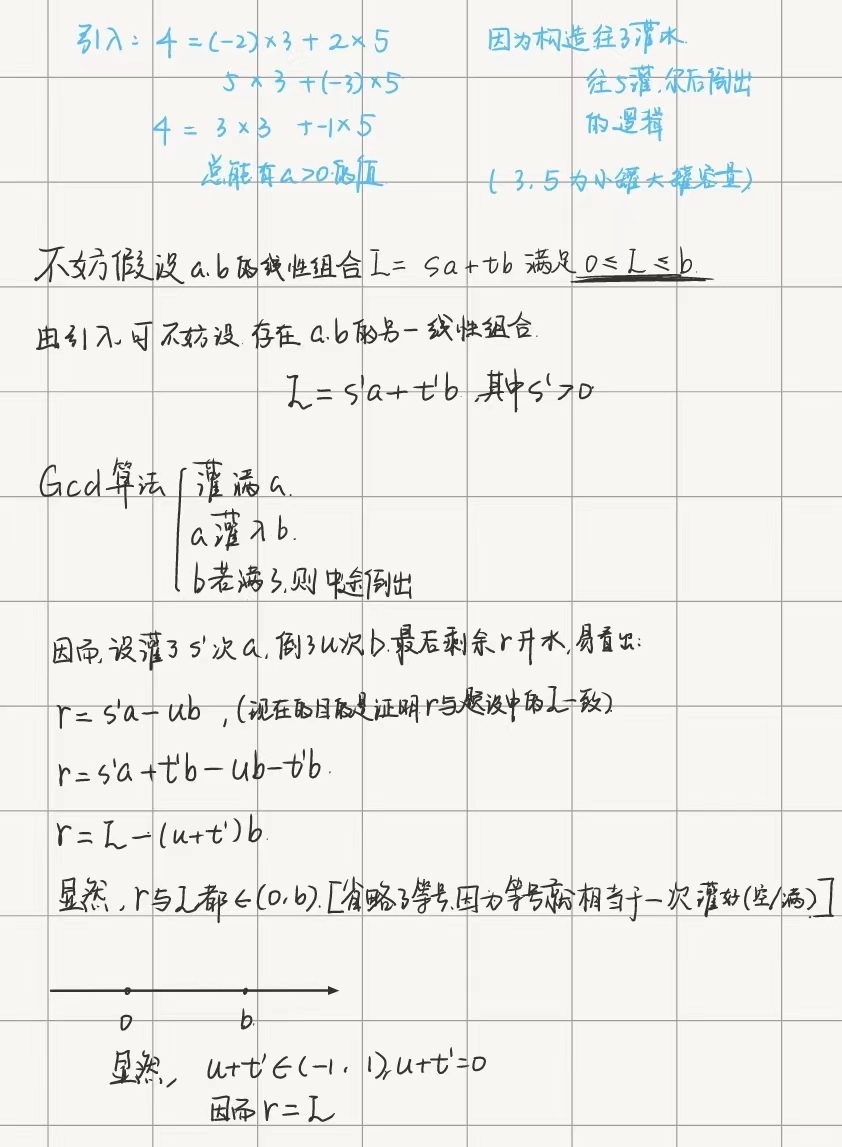 引入: 4 = (-2)×3 + 2×5
因为构造往3灌水
5×3 + (-3)×5
往5灌.尔后倒出
4 = 3×3 + -1×5
的逻辑
总能有a>0的值
(3.5为小罐大罐容量)
不妨假设a.b的线性组合L= sa+tb 满足 0≤L≤b.
由引入,可不妨设.存在a.b的另一线性组合.
L= s'a+t'b ,其中s'>0
Gcd算法
灌满a.
a灌入b.
b若满了,则中途倒出
因而,设灌了s'次a,倒了u次b.最后剩余r升水,易看出:
r= s'a-ub ,(现在的目的是证明r与题设中的L一致)
r= s'a+t'b-ub-t'b.
r= L-(u+t')b.
显然,r与L都∈(0,b).[省略了等号,因为等号就相当于一次灌好(空/满)]
0 b
显然, u+t'∈(-1, 1),u+t'=0
因而r=L